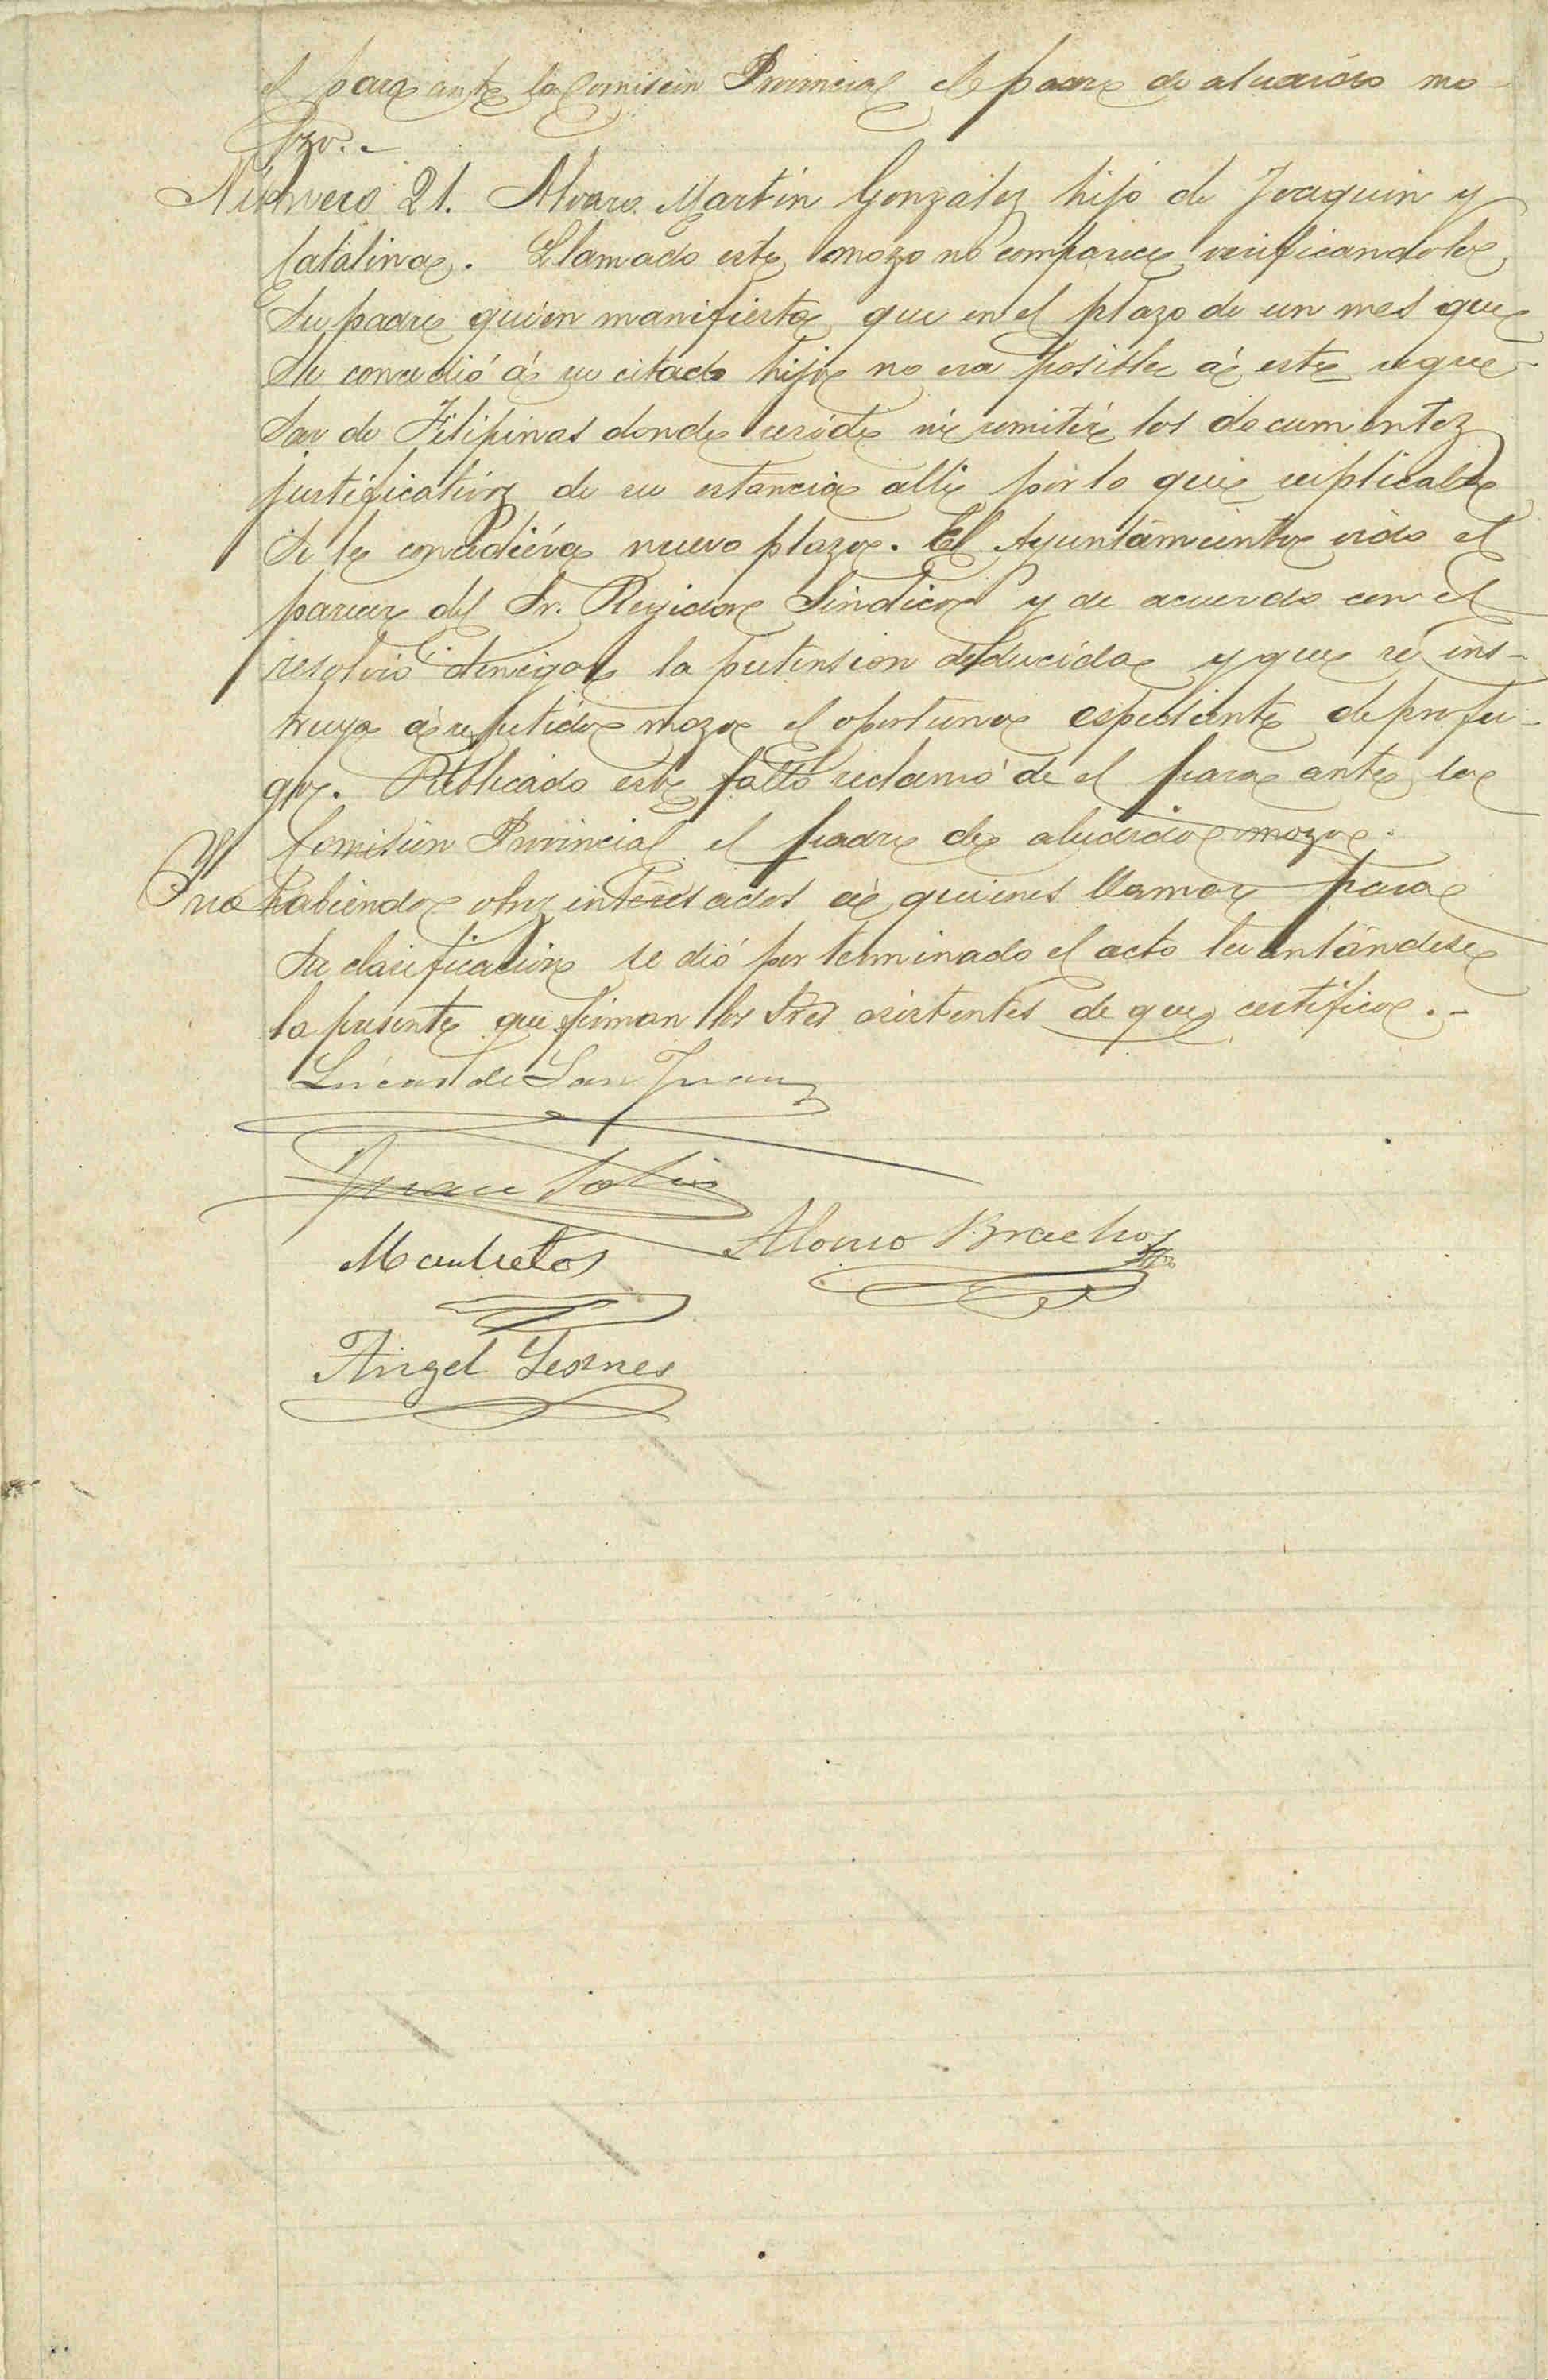 el para ante la Comisión Provincial el padre de aludido mo-
zo.-
Número 21. Alvaro Martín González hijo de Joaquin y
Catalina. Llamado este mozo no comparece verificandolo
su padre quien manifiesta que en el plazo de un mes que
se concedió á su citado hijo no era posible á este regre-
sar de Filipinas donde reside ni remitir los documentos
justificativos de su estancia alli por lo que suplicaba
se le concediera nuevo plazo. El Ayuntamiento oido el
parecer del Sr. Regidor Sindico y de acuerdo con el
resolvió denegar la pretension deducida y que se ins-
truya á repetido mozo el oportuno espediente de profu-
go. Publicado este fallo reclamó de el para ante la
Comisión Provincial el padre de aludido mozo.
Y no habiendo otros interesados á quienes llamar para
su clasificacion se dió por terminado el acto levantándose
la presente que firman los Sres asistentes de que certifico.-
Lúcas de San Juan
Juan
Alonso Bracho
Angel